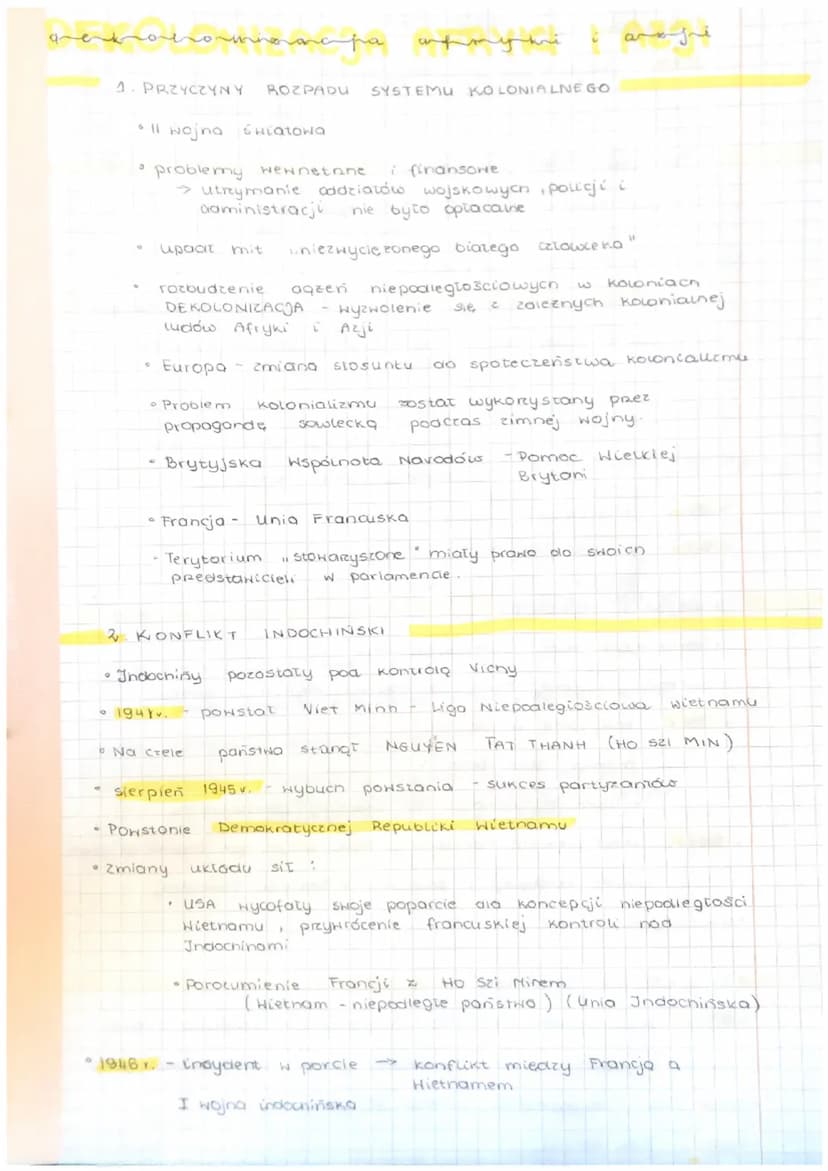 DEKOLONIZACJA AFRYKI I AZJI
dekolonizacja afryki i azji
1. PRZYCZYNY ROZPADU SYSTEMU KOLONIALNEGO
• II wojna światowa
• problemy wewnętrzne i finansowe
→ utrzymanie oddziałów wojskowych, policji i
administracji nie było opłacalne
• upadł mit „niezwyciężonego białego człowieka"
• rozbudzenie dążeń niepodległościowych w koloniach
DEKOLONIZACJA - wyzwolenie się z zależnych kolonialnej
ludów Afryki i Azji
• Europa - zmiana stosunku do społeczeństwa kolonializmu
• Problem kolonializmu został wykorzystany przez
propagandę sowiecką podczas zimnej wojny.
- Brytyjska Wspólnota Narodów - Pomoc Wielkiej
Brytani
• Francja - Unia Francuska
- Terytorium „stowarzyszone" miały prawo do swoich
przedstawicieli w parlamencie.
2. KONFLIKT INDOCHIŃSKI
• Indochiny pozostały pod kontrolą Vichy
• 1941r. - powstał Viet Minh - Liga Niepodległościowa Wietnamu
• Na czele państwa stanął NGUYEN TAT THANH (HO SZI MIN)
• sierpień 1945r. - wybuch powstania - sukces partyzantów
• Powstanie Demokratycznej Republiki Wietnamu
• zmiany układu sił :
• USA wycofały swoje poparcie dla koncepcji niepodległości
Wietnamu, przywrócenie francuskiej kontroli nad
Indochinami
• Porozumienie Francji z Ho Szi Minem
(Wietnam - niepodległe państwo) (Unia Indochińska)
• 1946r. - incydent w porcie → konflikt między Francją a
Wietnamem
I wojna indochińska